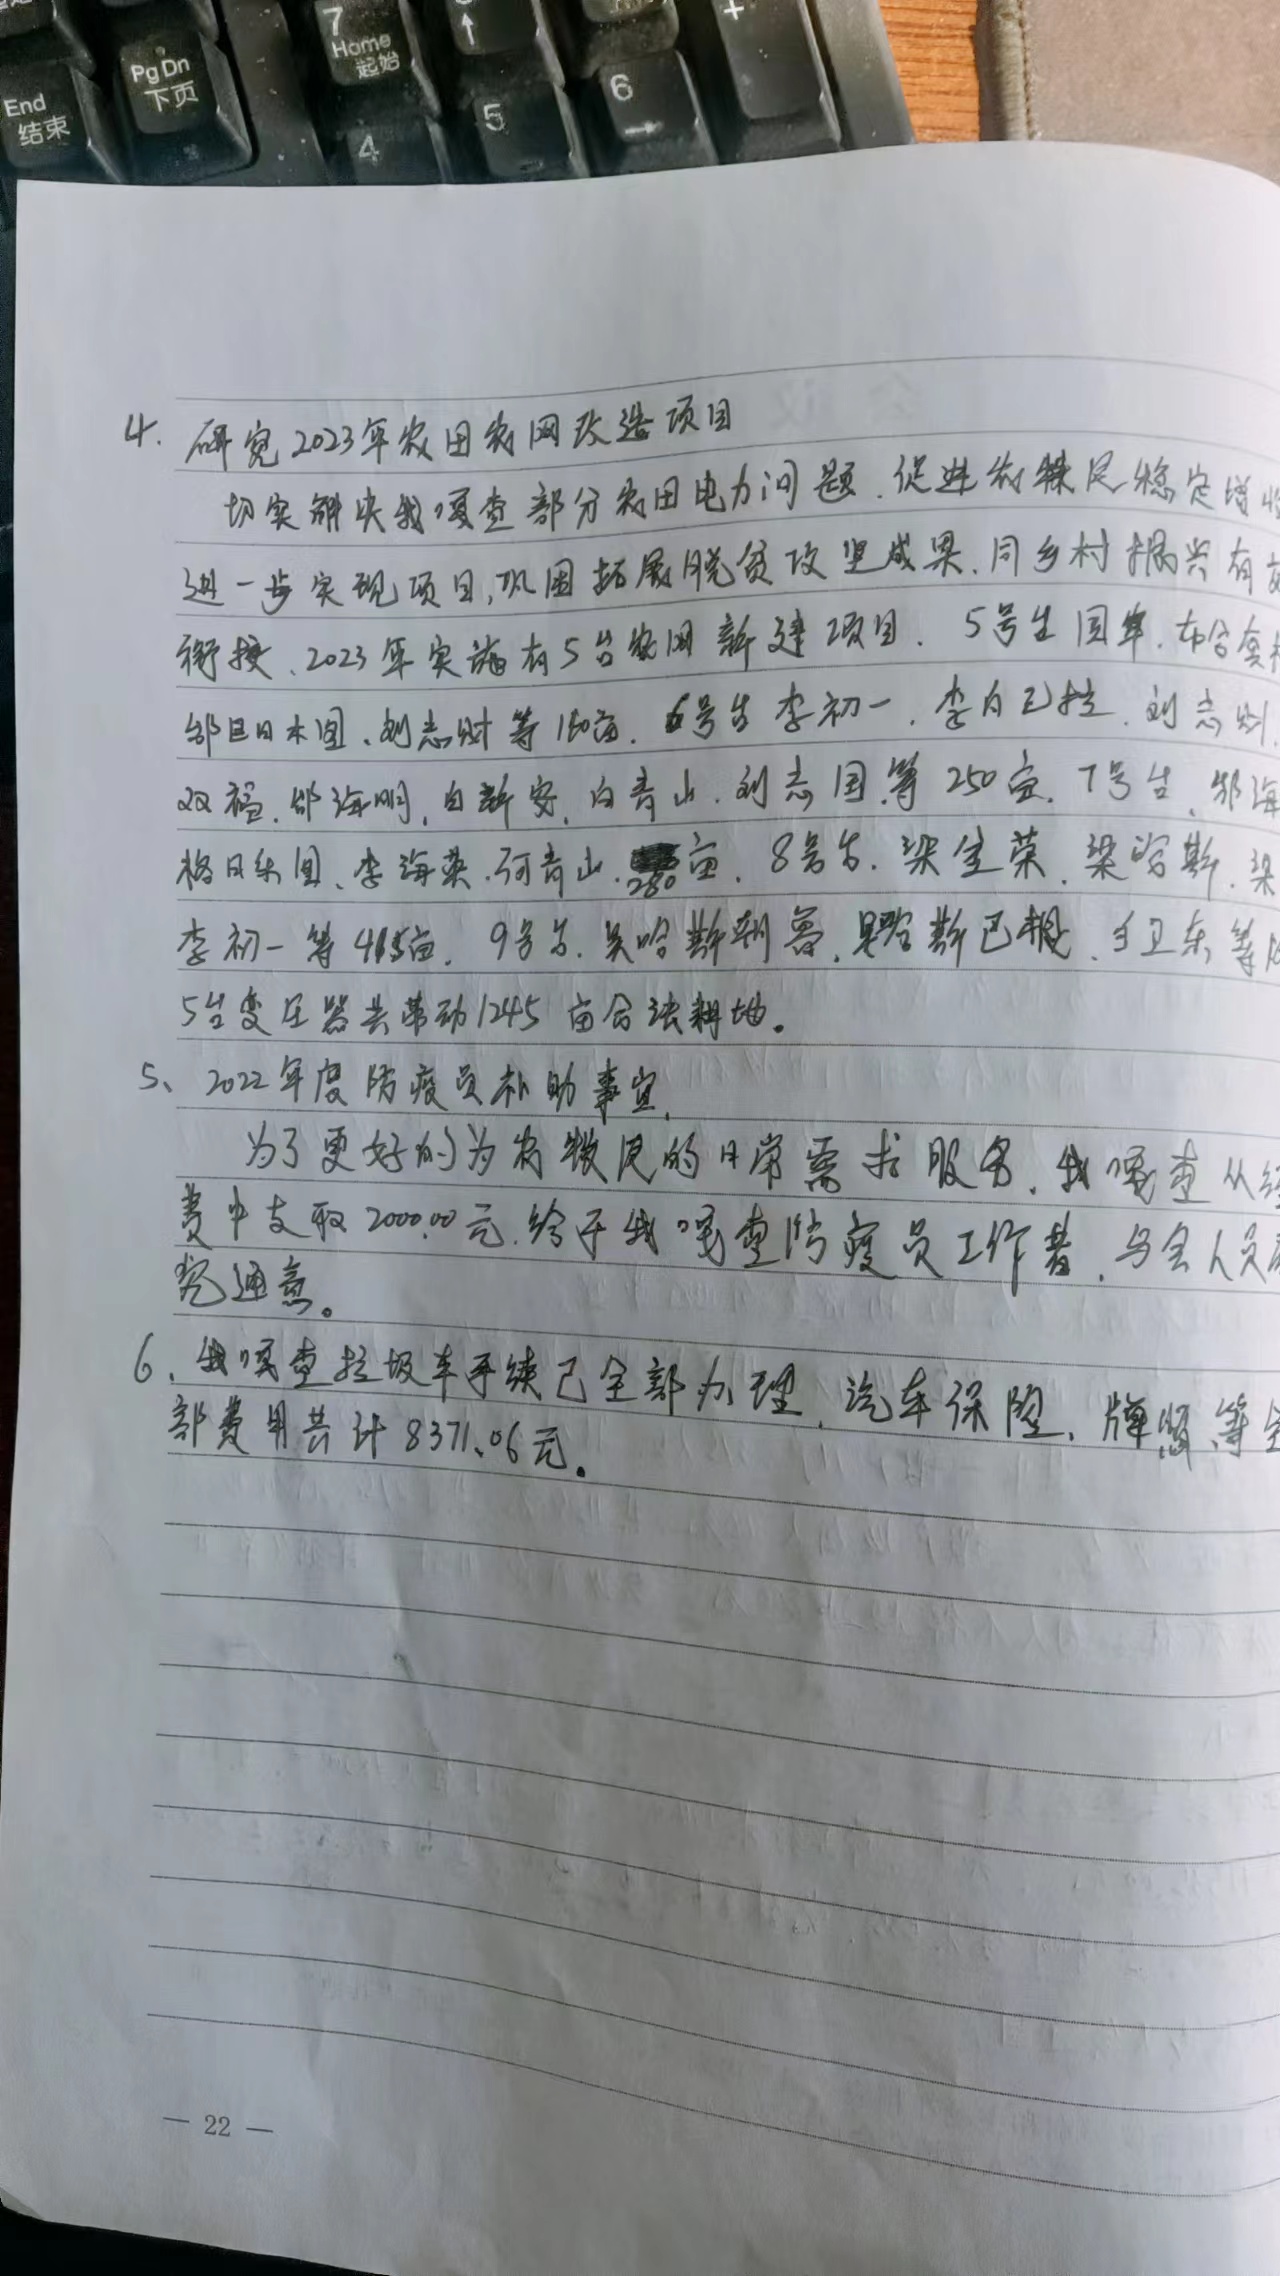 7
Home
起始
↑
+
PgDn
下页
End
结束
4
5
6
→
4. 研究2023年农田农网改造项目
切实解决我嘎查部分农田电力问题、促进农牧民稳定增收
进一步实现项目,巩固拓展脱贫攻坚成果、同乡村振兴有效
衔接、2023年实施有5台农网新建项目、5号台国军、
邰巴日木图、刘志财等150亩、6号台李初一、李白乙拉、刘志财、
双福、邰海明、白新安、白青山、刘志国、等250亩、7号台、邰海
格日乐图、李海英、何青山、280亩、8号台、梁生荣、梁哈斯、梁
李初一等415亩、9号台、吴哈斯朝鲁、吴哈斯巴根、卫东等
5台变压器共带动1245亩合法耕地。
5、2022年度防疫员补助事宜、
为了更好的为农牧民的日常需求服务、我嘎查从经
费中支取2000.00元、给于我嘎查防疫员工作者、与会人员研
究通意。
6、我嘎查垃圾车手续已全部办理、汽车保险、牌照、等全
部费用共计8371.06元。
— 22 —